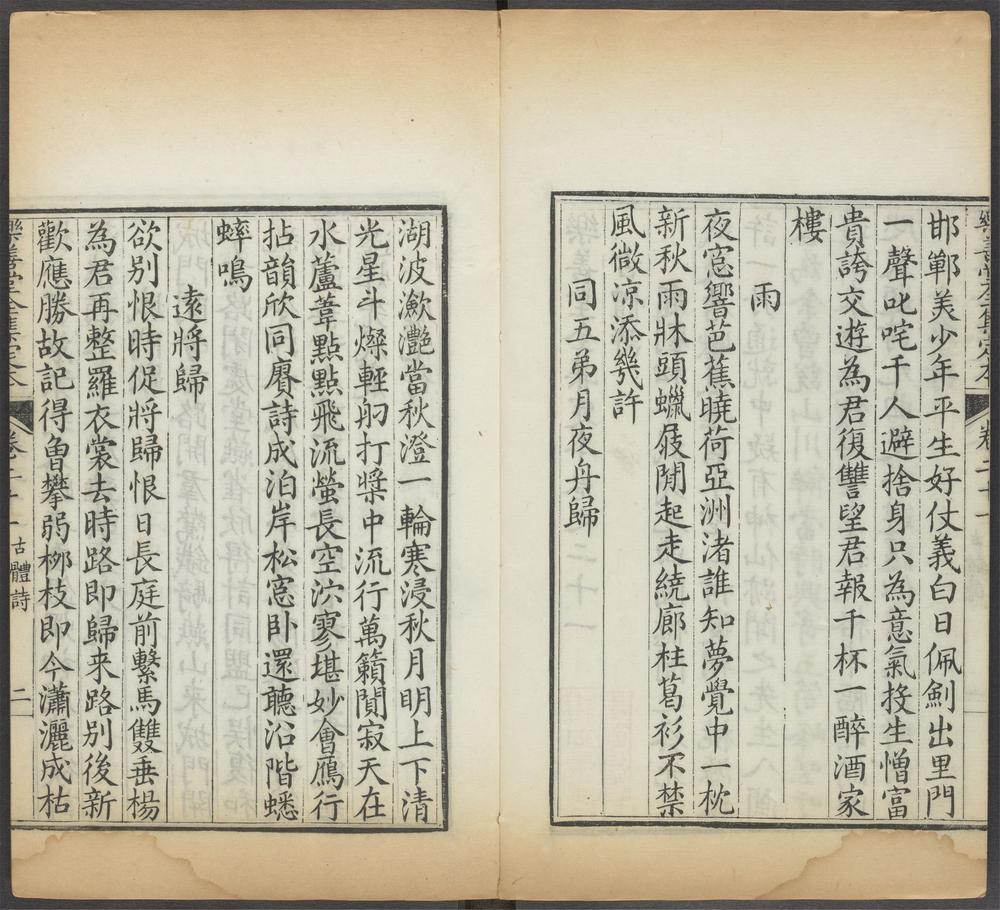 邯鄲美少年平生好仗義白日佩劍出里門
一聲叱咤千人避捨身只為意氣投生憎富
貴誇交遊為君復讐望君報千杯一醉酒家
樓
雨
夜窓響芭蕉曉荷亞洲渚誰知夢覺中一枕
新秋雨牀頭蠟屐閒起走繞廊柱葛衫不禁
風微涼添幾許
同五弟月夜舟歸
湖波瀲灩當秋澄一輪寒浸秋月明上下清
光星斗燦輕舠打槳中流行萬籟閴寂天在
水蘆葦點點飛流螢長空泬寥堪妙會鴈行
拈韻欣同賡詩成泊岸松窓卧還聽沿階蟋
蟀鳴
遠將歸
欲别恨時促將歸恨日長庭前繫馬雙垂楊
為君再整羅衣裳去時路即歸来路别後新
歡應勝故記得曾攀弱桺枝即今瀟灑成枯
樂善堂全集定本
卷二十一
古體詩
二